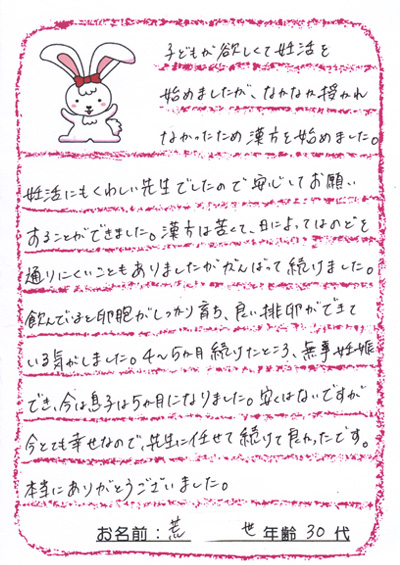 子どもが欲しくて妊活を
始めましたが、なかなか授かれ
なかったため漢方を始めました。
妊活にもくわしい先生でしたので安心してお願い
することができました。漢方は苦くて、日によってはのどを
通りにくいこともありましたががんばって続けました。
飲んでいると卵胞がしっかり育ち、良い排卵ができて
いる気がしました。4〜5か月続けたところ、無事妊娠
でき、今は息子は5か月になりました。安くはないですが
今とても幸せなので、先生に任せて続けて良かったです。
本当にありがとうございました。
お名前：荒 世 年齢 30 代